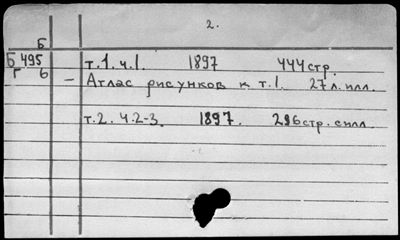 2.
Б
Б 495 т.1.ч.1. 1897 444 стр.
Г 6 – Атлас рисунков к т.1. 27 л. илл.
т.2. ч.2-3. 1897. 296 стр. с илл.